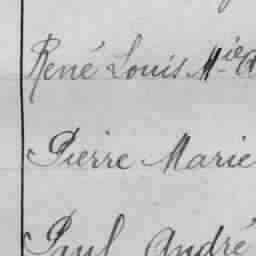 René Louis Mie
Pierre Marie
Paul André